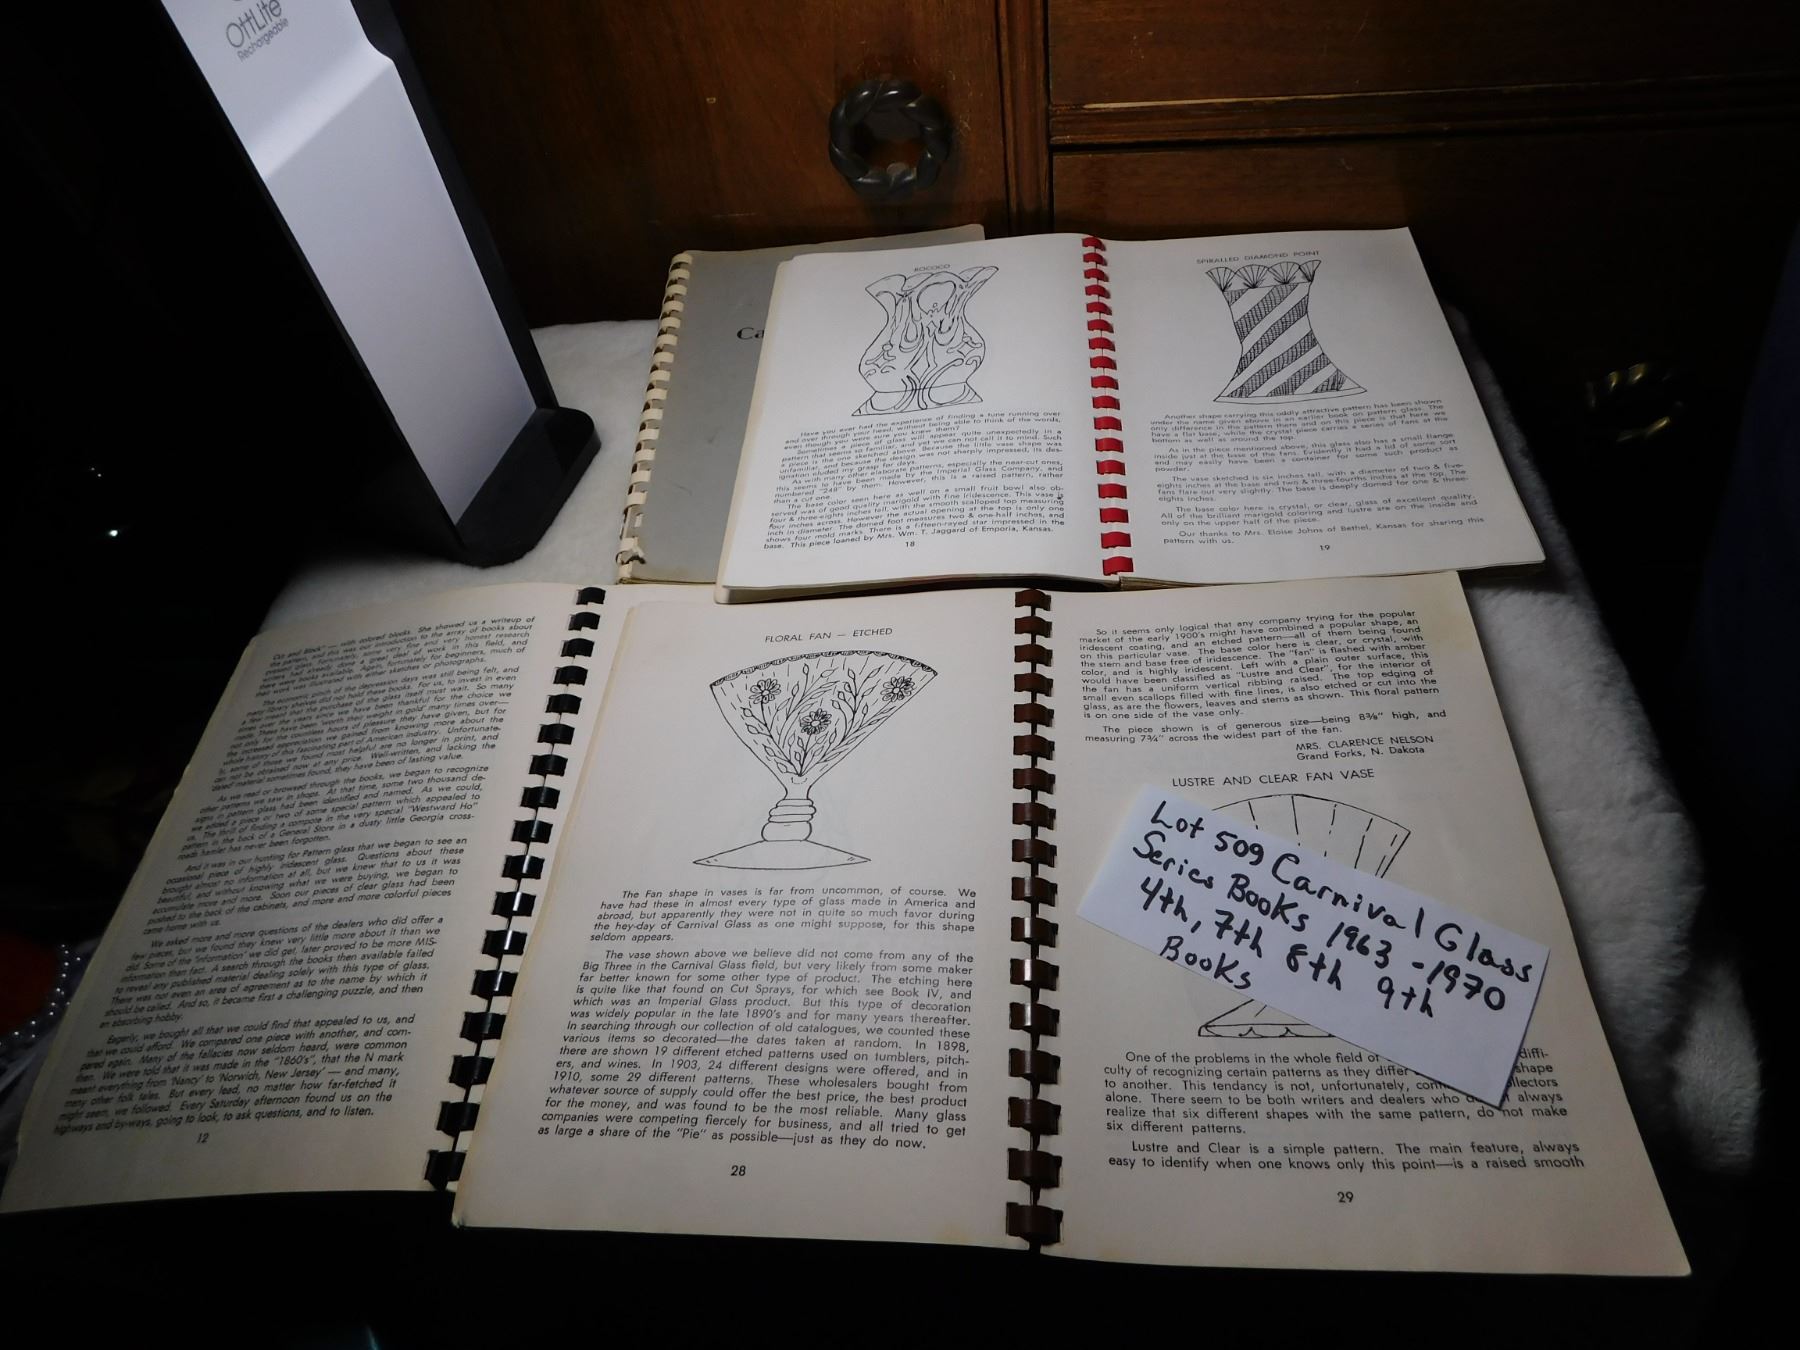 OttLite
Rechargeable
Ca
ROCOCO
Have you ever had the experience of finding a tune running over
and over through your head, without being able to think of the words,
even though you were sure you knew them?
Sometimes a piece of glass will appear quite unexpectedly in a
pattern that seems so familiar, and yet we can not call it to mind. Such
a piece is the one sketched above. Because the little vase shape was
unfamiliar, and because the design was not sharply impressed, its des-
ignation eluded my grasp for days.
As with many other elaborate patterns, especially the near-cut ones,
this seems to have been made by the Imperial Glass Company, and
numbered "248" by them. However, this is a raised pattern, rather
than a cut one.
The base color seen here as well on a small fruit bowl also ob-
served was of good quality marigold with fine iridescence. This vase is
four & three-eights inches tall, with the smooth scalloped top measuring
four inches across. However the actual opening at the top is only one
inch in diameter. The domed foot measures two & one-half inches, and
shows four mold marks. There is a fifteen-rayed star impressed in the
base. This piece loaned by Mrs. Wm. T. Jaggard of Emporia, Kansas.
18
SPIRALLED DIAMOND POINT
Another shape carrying this oddly attractive pattern has been shown
under the name given above in an earlier book on pattern glass. The
only difference in the pattern there and on this piece is that here we
have a flat base, while the crystal piece carries a series of fans at the
bottom as well as around the top.
As in the piece mentioned above, this glass also has a small flange
inside just at the base of the fans. Evidently it had a lid of some sort
and may easily have been a container for some such product as
powder.
The vase sketched is six inches tall, with a diameter of two & five-
eights inches at the base and two & three-fourths inches at the top. The
fans flare out very slightly. The base is deeply domed for one & three-
eights inches.
The base color here is crystal, or clear, glass of excellent quality.
All of the brilliant marigold coloring and lustre are on the inside and
only on the upper half of the piece.
Our thanks to Mrs. Eloise Johns of Bethel, Kansas for sharing this
pattern with us.
19
Cut and Block" — with colored blocks. She showed us a writeup of
the pattern, and this was our introduction to the array of books about
pattern glass. Fortunately, some very fine and very honest research
writers had already done a great deal of work in this field, and
there were books available. Again, fortunately for beginners, much of
their work was illustrated with either sketches or photographs.
The economic pinch of the depression days was still being felt, and
many library shelves did not hold these books. For us, to invest in even
a few meant that the purchase of the glass itself must wait. So many
times over the years since we have been thankful for the choice we
made. These have been worth their weight in gold many times over—
not only for the countless hours of pleasure they have given, but for
the increased appreciation we gained from knowing more about the
whole history of this fascinating part of American industry. Unfortunate-
ly, some of those we found most helpful are no longer in print, and
can not be obtained now at any price. Well-written, and lacking the
'dated' material sometimes found, they have been of lasting value.
As we read or browsed through the books, we began to recognize
other patterns we saw in shops. At that time, some two thousand de-
signs in pattern glass had been identified and named. As we could,
we added a piece or two of some special pattern which appealed to
us. The thrill of finding a compote in the very special "Westward Ho"
pattern in the back of a General Store in a dusty little Georgia cross-
roads hamlet has never been forgotten.
And it was in our hunting for Pattern glass that we began to see an
occasional piece of highly iridescent glass. Questions about these
brought almost no information at all, but we knew that to us it was
beautiful, and without knowing what we were buying, we began to
accumulate more and more. Soon our pieces of clear glass had been
pushed to the back of the cabinets, and more and more colorful pieces
came home with us.
We asked more and more questions of the dealers who did offer a
few pieces, but we found they knew very little more about it than we
did. Some of the 'information' we did get, later proved to be more MIS-
information than fact. A search through the books then available failed
to reveal any published material dealing solely with this type of glass.
There was not even an area of agreement as to the name by which it
should be called. And so, it became first a challenging puzzle, and then
an absorbing hobby.
Eagerly, we bought all that we could find that appealed to us, and
that we could afford. We compared one piece with another, and com-
pared again. Many of the fallacies now seldom heard, were common
then. We were told that it was made in the "1860's", that the N mark
meant everything from 'Nancy' to 'Norwich, New Jersey' — and many,
many other folk tales. But every lead, no matter how far-fetched it
might seem, we followed. Every Saturday afternoon found us on the
highways and by-ways, going to look, to ask questions, and to listen.
12
FLORAL FAN — ETCHED
The Fan shape in vases is far from uncommon, of course. We
have had these in almost every type of glass made in America and
abroad, but apparently they were not in quite so much favor during
the hey-day of Carnival Glass as one might suppose, for this shape
seldom appears.
The vase shown above we believe did not come from any of the
Big Three in the Carnival Glass field, but very likely from some maker
far better known for some other type of product. The etching here
is quite like that found on Cut Sprays, for which see Book IV, and
which was an Imperial Glass product. But this type of decoration
was widely popular in the late 1890's and for many years thereafter.
In searching through our collection of old catalogues, we counted these
various items so decorated—the dates taken at random. In 1898,
there are shown 19 different etched patterns used on tumblers, pitch-
ers, and wines. In 1903, 24 different designs were offered, and in
1910, some 29 different patterns. These wholesalers bought from
whatever source of supply could offer the best price, the best product
for the money, and was found to be the most reliable. Many glass
companies were competing fiercely for business, and all tried to get
as large a share of the "Pie" as possible—just as they do now.
28
So it seems only logical that any company trying for the popular
market of the early 1900's might have combined a popular shape, an
iridescent coating, and an etched pattern—all of them being found
on this particular vase. The base color here is clear, or crystal, with
the stem and base free of iridescence. The "fan" is flashed with amber
color, and is highly iridescent. Left with a plain outer surface, this
would have been classified as "Lustre and Clear", for the interior of
the fan has a uniform vertical ribbing raised. The top edging of
small even scallops filled with fine lines, is also etched or cut into the
glass, as are the flowers, leaves and stems as shown. This floral pattern
is on one side of the vase only.
The piece shown is of generous size—being 8⅜" high, and
measuring 7¾" across the widest part of the fan.
MRS. CLARENCE NELSON
Grand Forks, N. Dakota
LUSTRE AND CLEAR FAN VASE
Lot 509 Carnival Glass
Series Books 1963 - 1970
4th, 7th 8th 9th
Books
One of the problems in the whole field of diffi-
culty of recognizing certain patterns as they differ shape
to another. This tendancy is not, unfortunately, llectors
alone. There seem to be both writers and dealers who always
realize that six different shapes with the same pattern, do not make
six different patterns.
Lustre and Clear is a simple pattern. The main feature, always
easy to identify when one knows only this point—is a raised smooth
29